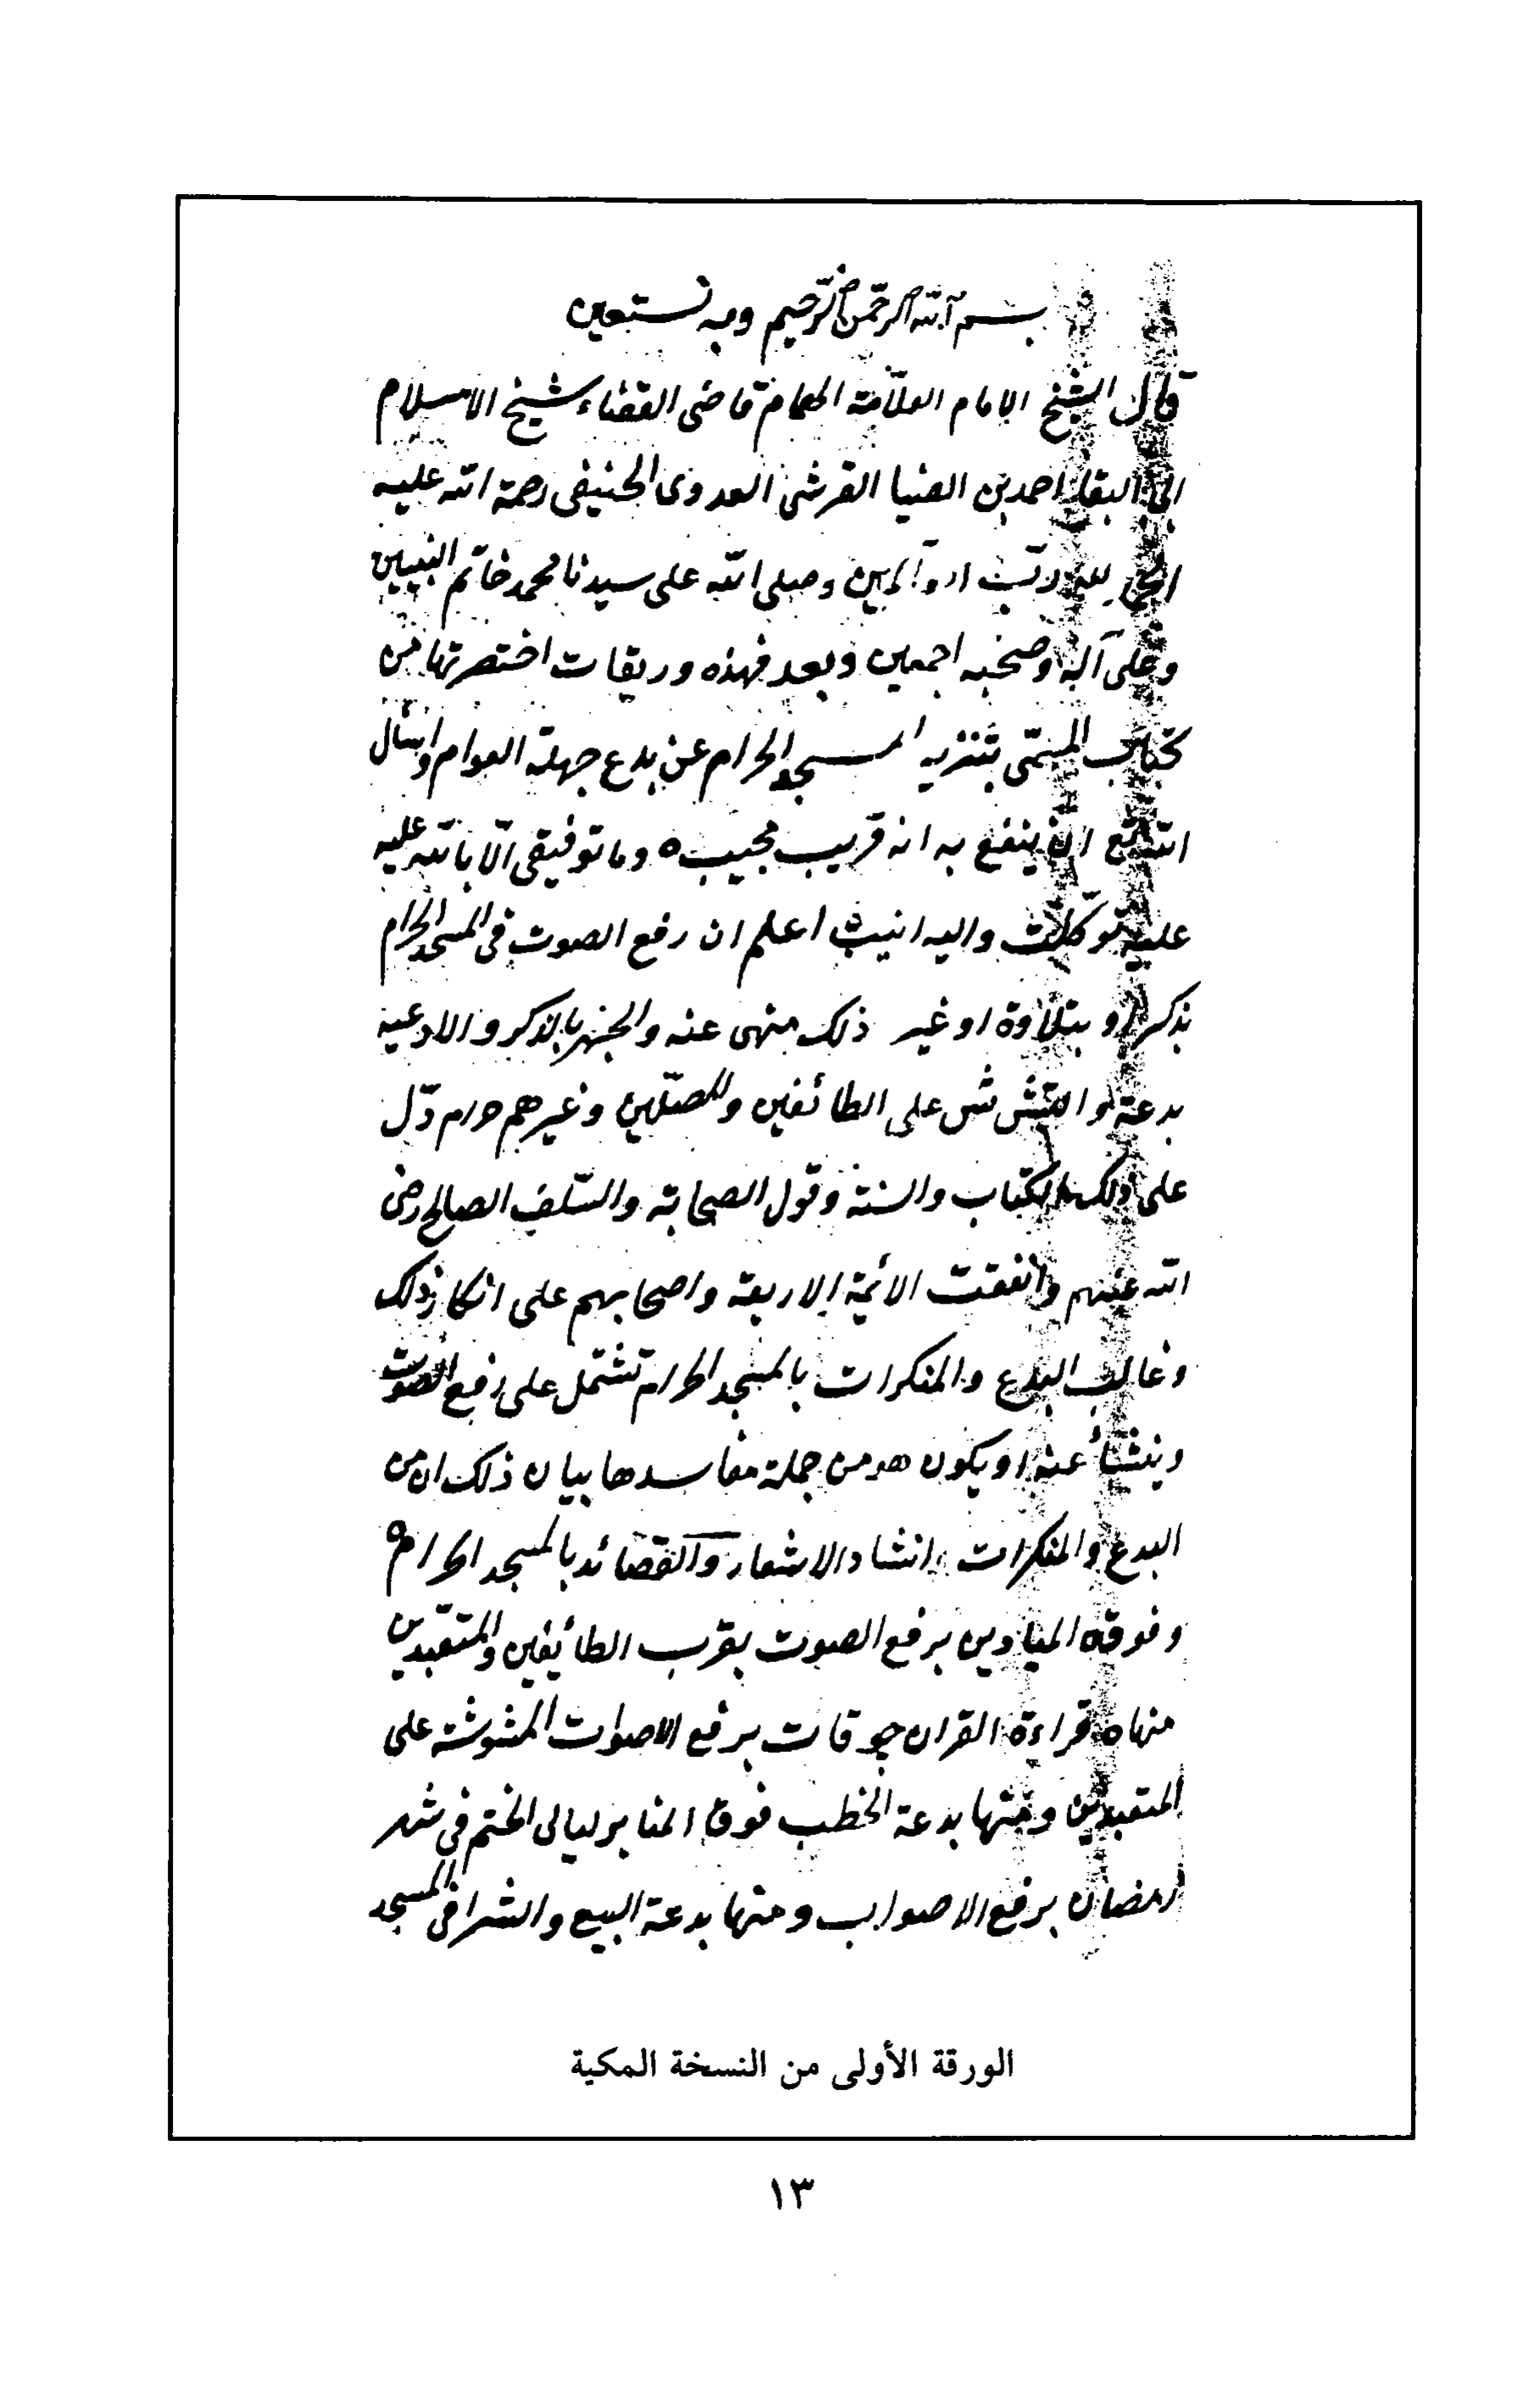 بسم الله الرحمن الرحيم وبه نستعين
قال الشيخ الامام العلامة الهمام قاضى القضاء شيخ الاسلام
ابى البقا احمد بن الضيا القرشى العدوى الحنيفى رحمة الله عليه
الحمد لله رب وصلى الله على سيدنا محمد خاتم النبيين
وعلى آله وصحبه اجمعين وبعد فهذه وريقات اختصرتها من
كتابى المسمّى بتنزيه المسجد الحرام عن بدع جهلة العوام واسأل
الله تع ان ينفع به انه قريب مجيب ه وما توفيقى الّا بالله عليه
عليه توكّلت واليه انيب اعلم ان رفع الصوت فى المسجد الحرام
بذكر او بتلاوة او غير ذلك منهى عنه والجهر بالذكر والادعيه
بدعة والتشش على الطائفين والمصلّين وغيرهم حرام دّل
على ذلك الكتاب والسنة وقول الصحابة والسّلف الصالح رضى
الله عنهم واتفقت الائمة الاربعة واصحابهم على انكار ذلك
وغالب البدع والمنكرات بالمسجد الحرام تشتمل على رفع الصوت
وينشأ عنه او يكون هو من جملة مفاسدها بيان ذلك ان من
البدع والمنكرات انشاد الاشعار والقصائد بالمسجد الحرام ه
وفوقه الميادين برفع الصوت بقرب الطائفين والمتعبدين
منها ه قراءة القران جوقات برفع الاصوات المشوشة على
المتعبدين ومنها بدعة الخطب فوق المنابر ليالى الختم فى شهر
رمضان برفع الاصوات ومنها بدعة البيع والشرا فى المسجد
الورقة الأولى من النسخة المكية
١٣